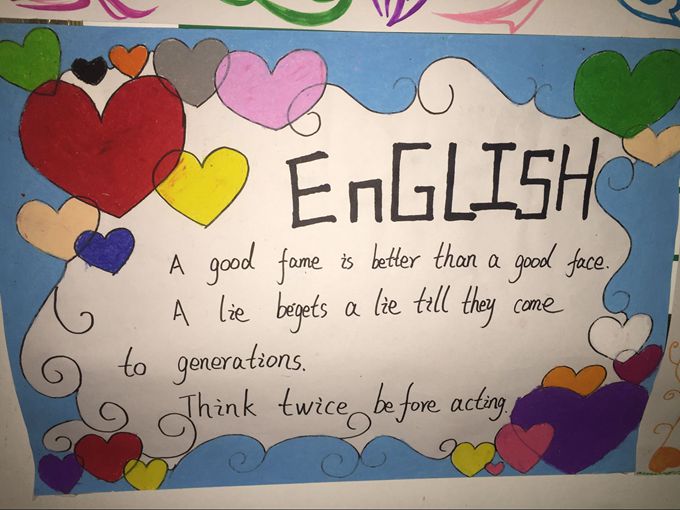 EnGLISH
A good fame is better than a good face.
A lie begets a lie till they come
to generations.
Think twice before acting.